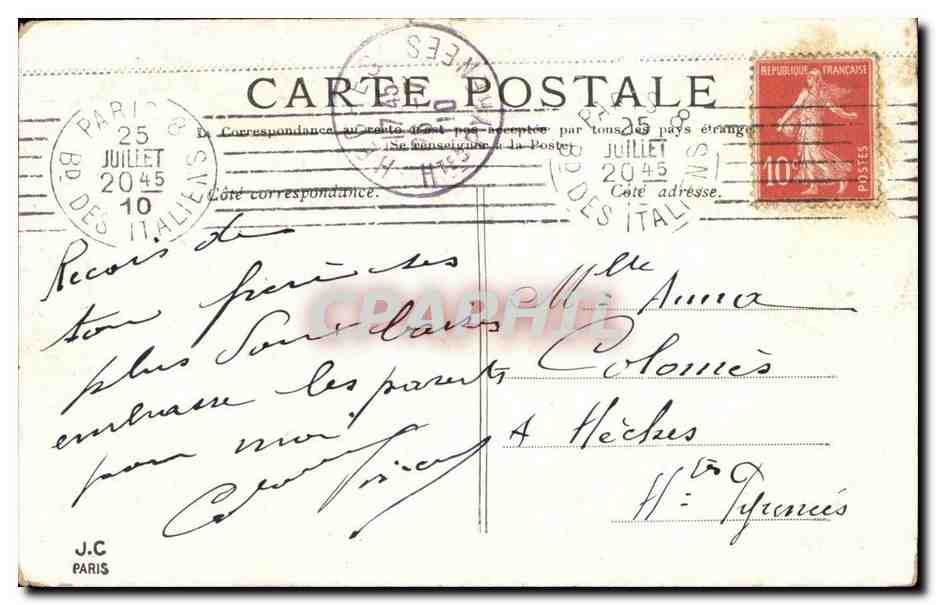 CARTE POSTALE
La Correspondance au recto n'est pas acceptée par tous les pays étrangers
(Se renseigner à la Poste)
Côté correspondance.
Côté adresse.
PARIS 8
25
JUILLET
20 45
10
BD. DES ITALIENS
HECHES
17 45
10
HTES PYRENEES
25
JUILLET
20 45
BD. DES ITALIENS
REPUBLIQUE FRANÇAISE
10c
POSTES
Recois de
ton frère ses
plus doux baisers
embrasse les parents
pour moi
CPARPHIL
Mlle Anna
Colomès
A Hèches
Htes Pyrenées
J.C
PARIS